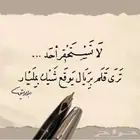 لا تستحقر أحد ...
ترى قلم بريال يوقع شيك بمليار